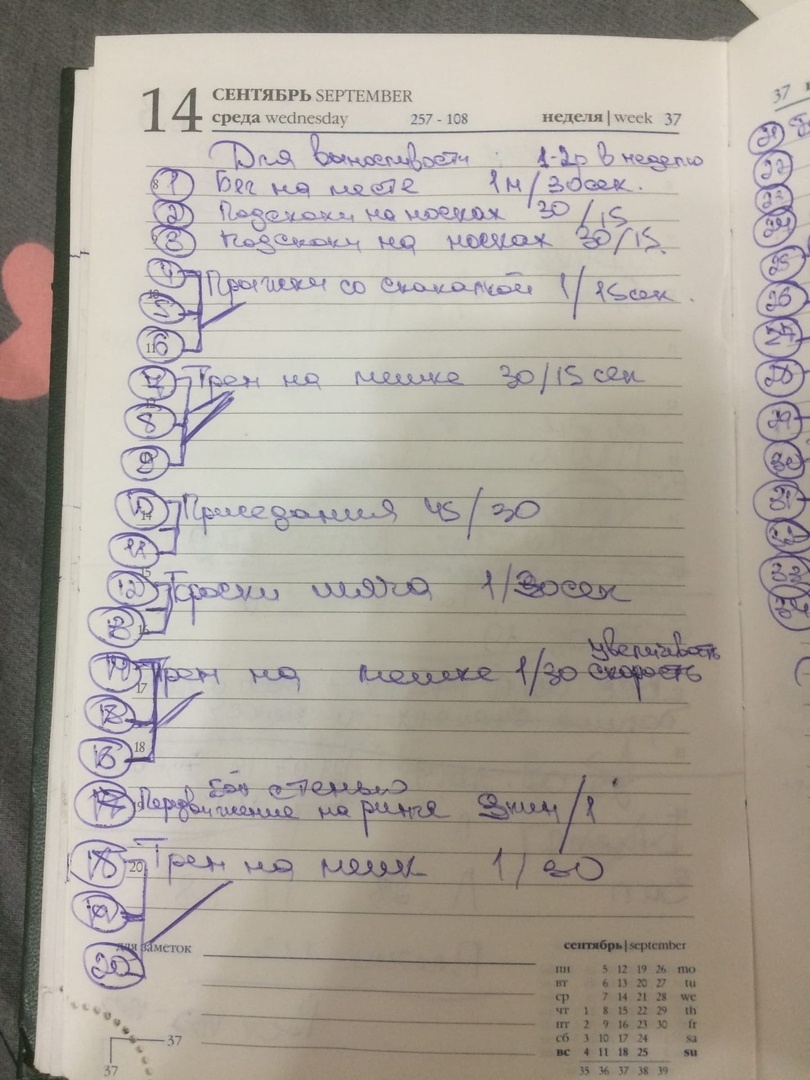 14 СЕНТЯБРЬ SEPTEMBER
среда wednesday 257 - 108 неделя | week 37
Для выносливости 1-2р в неделю
8 1 Бег на месте 1м/30сек.
2 Подскоки на носках 30/15
3 Подскоки на носках 30/15
4 Прыжки со скакалкой 1/15сек.
5
11 6
7 Трен на мешке 30/15 сек
8
9
14 Приседания 45/30
11
12 Броски мяча 1/30сек
16
увеличивать
14 Трен на мешке 1/30 скорость
17
18
Бой с тенью
17 Передвижение на ринге 3мин/1
18 20 Трен на мешк 1/30
19
20
для заметок
сентябрь | september
пн 5 12 19 26 mo
вт 6 13 20 27 tu
ср 7 14 21 28 we
чт 1 8 15 22 29 th
пт 2 9 16 23 30 fr
сб 3 10 17 24 sa
вс 4 11 18 25 su
35 36 37 38 39
37
37
37
21
22
23
24
25
26
27
28
29
30
31